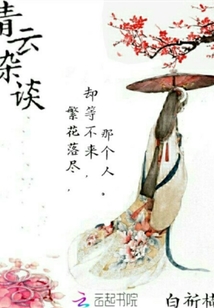 青云杂谈
繁花落尽，
却等不来，
那个人。
云起书院
白祈橘